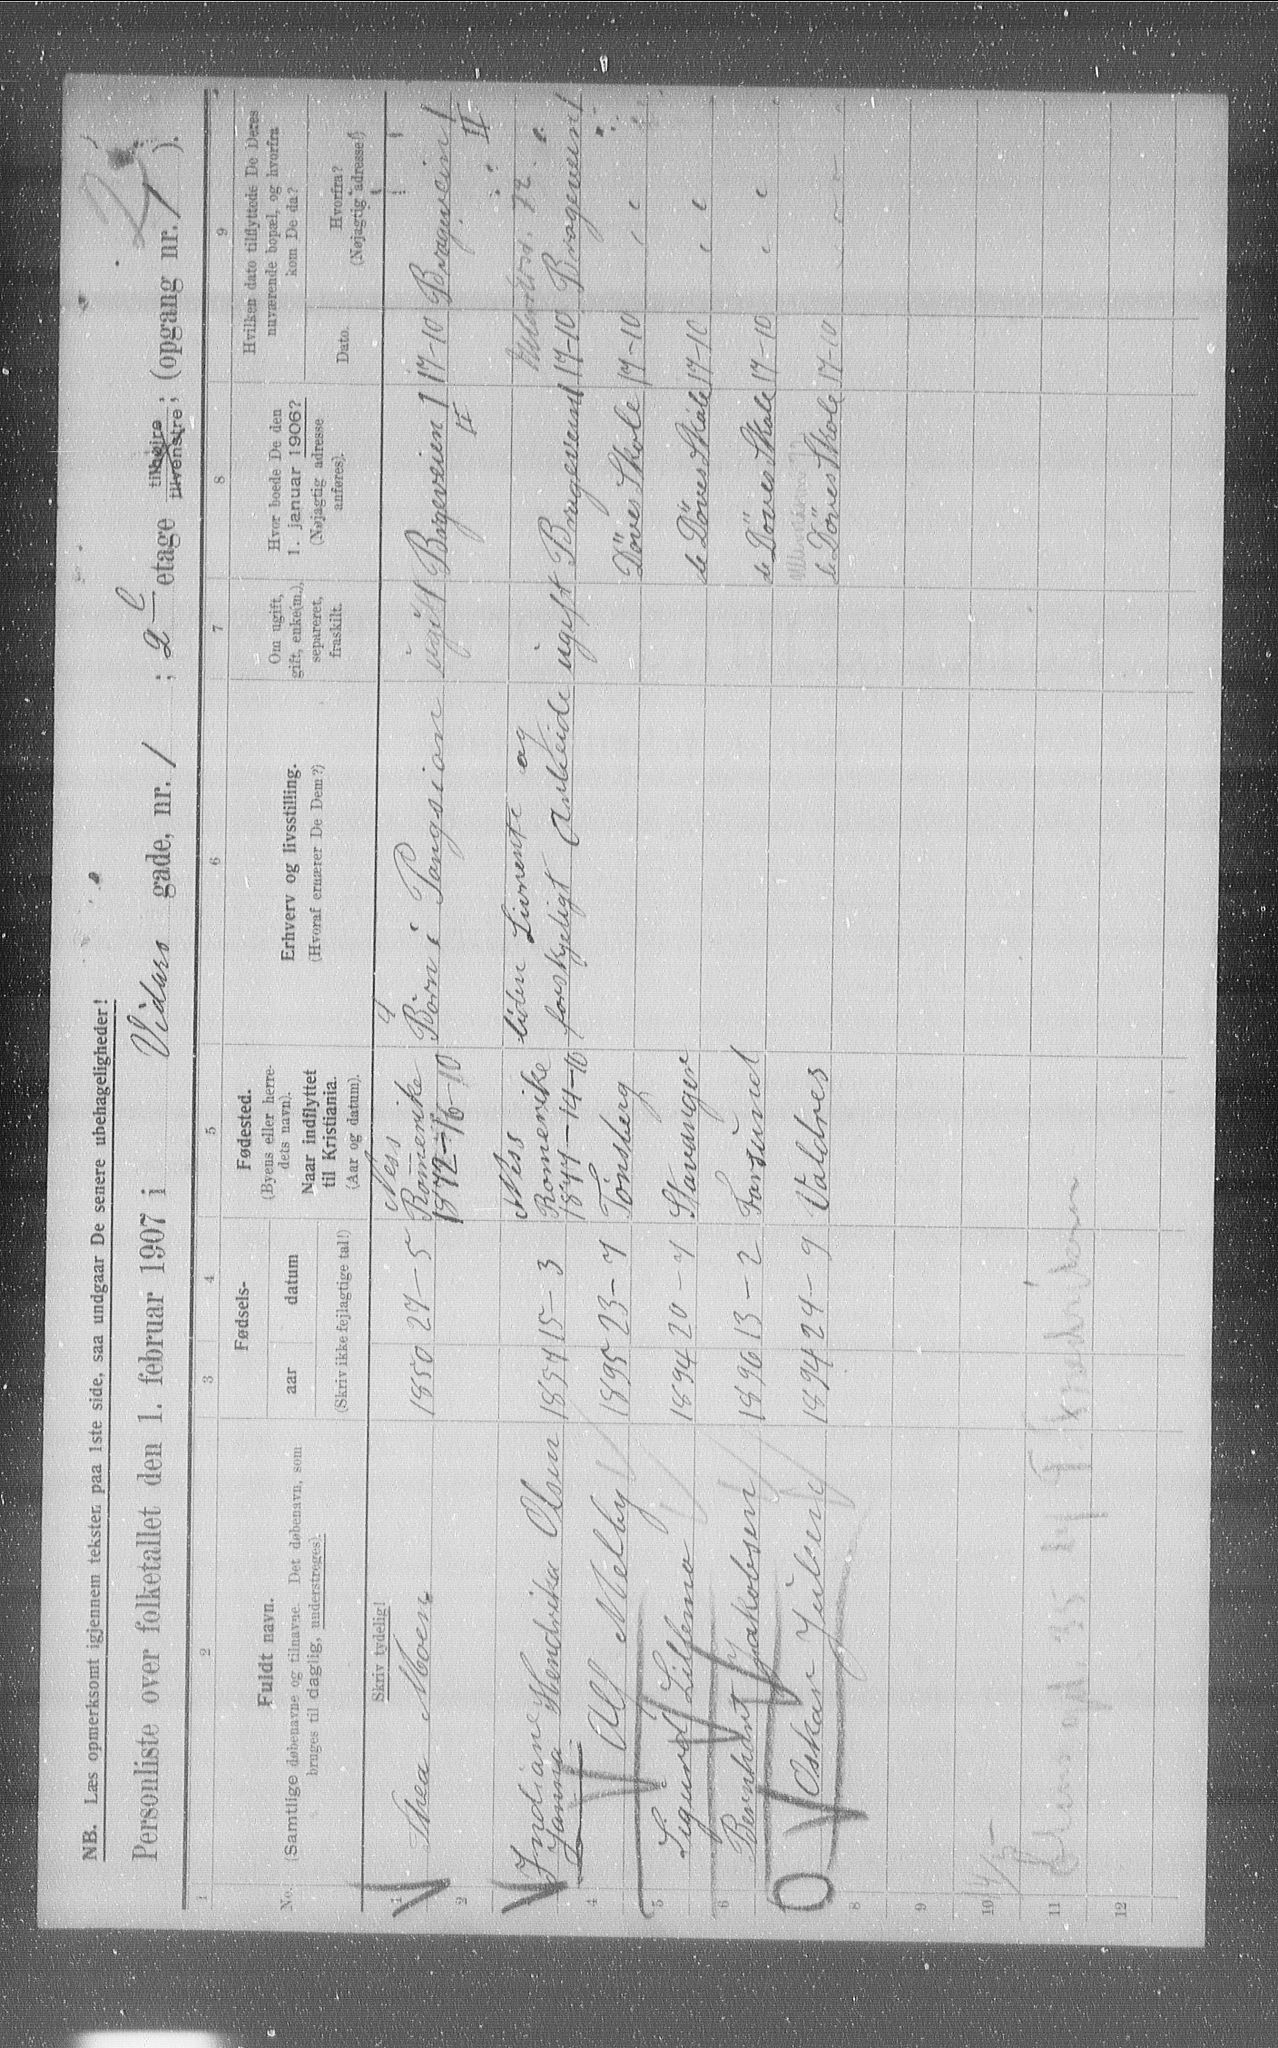 NB. Læs opmerksomt igjennem teksten paa 1ste side, saa undgaar De senere ubehageligheder!
Personliste over folketallet den 1. februar 1907 i Vidars gade, nr. 1 ; 2 etage tilhøire tilvenstre; (opgang nr. 1 ).
1 2 3 4 5 6 7 8 9
No.
Fuldt navn.
(Samtlige døbenavne og tilnavne. Det døbenavn, som
bruges til daglig, understreges).
Skriv tydelig!
Fødsels-
aar datum
(Skriv ikke fejlagtige tal!)
Fødested.
(Byens eller herre-
dets navn).
Naar indflyttet
til Kristiania.
(Aar og datum).
Erhverv og livsstilling.
(Hvoraf ernærer De Dem?)
Om ugift,
gift, enke(m.),
separeret,
fraskilt.
Hvor boede De den
1. januar 1906?
(Nøjagtig adresse
anføres).
Hvilken dato tilflyttede De Deres
nuværende bopæl, og hvorfra
kom De da?
Dato.
Hvorfra?
(Nøjagtig adresse!)
1 Thea Moen 1850 27-5 Ness Romerike 1872-16-10 4 Børn i Pangsion ugift 17-10
2 II II
Indiane Hendrika Olsen 1857 15-3 Ness Romerike 1877-14-10 liden Livrente og
Janna forskjeligt Arbeide ugift 17-10
4 Alf Melby 1895 23-7 Tønsberg Døves Skole 17-10
5 Sigurd 1894 20-7 Stavanger de Døves Skole 17-10
6 Bernhart Jakobsen 1896 13-2 Farsund de Døves Skole 17-10
Oskar 1894 24-9 Valdres de Døves Skole 17-10
8
9
10
11
12